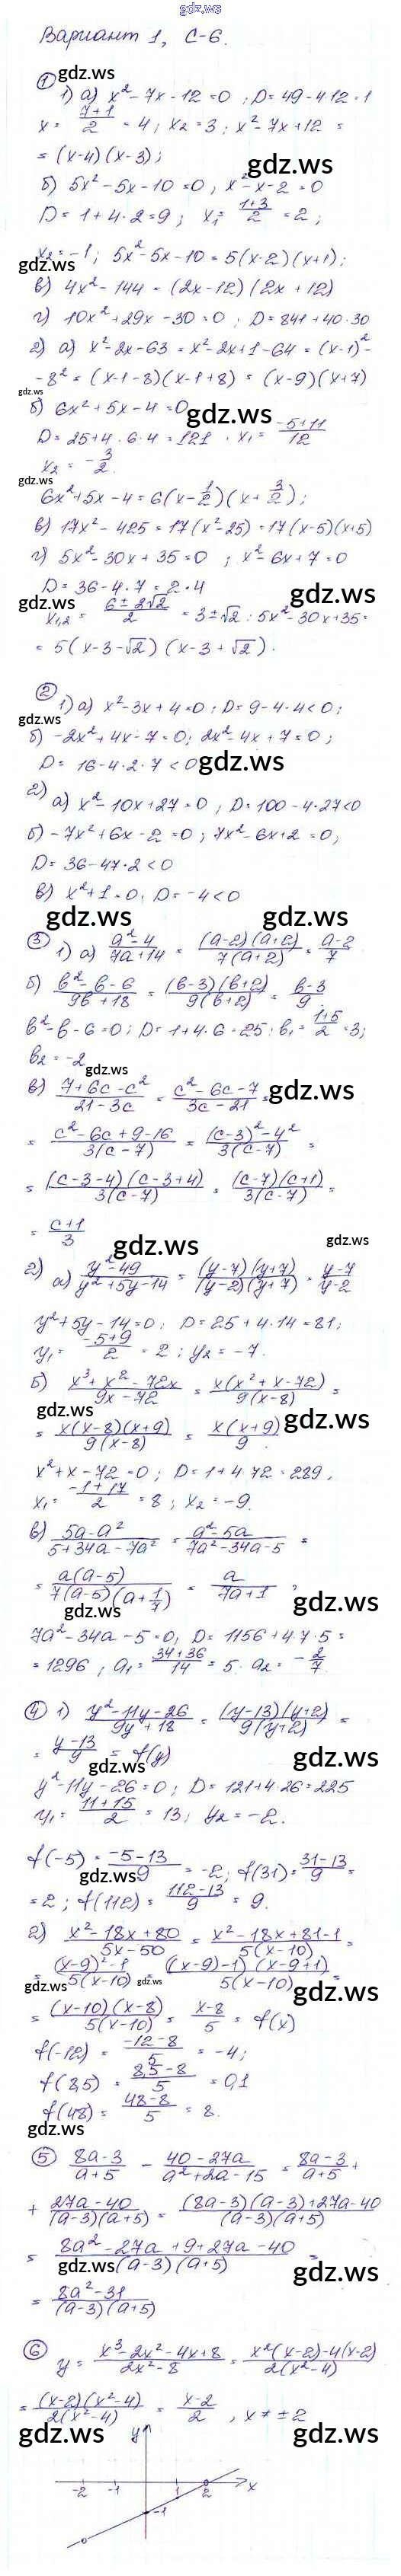 gdz.ws
Вариант 1, С-6.
gdz.ws
① 1) а) x² - 7x - 12 = 0 ; D = 49 - 4·12 = 1
x = (7+1)/2 = 4 ; x₂ = 3 ; x² - 7x + 12 =
gdz.ws
= (x-4)(x-3) ;
б) 5x² - 5x - 10 = 0 , x² - x - 2 = 0
D = 1 + 4·2 = 9 ; x₁ = (1+3)/2 = 2 ;
gdz.ws
x₂ = -1 ; 5x² - 5x - 10 = 5(x-2)(x+1) ;
в) 4x² - 144 = (2x-12)(2x+12)
г) 10x² + 29x - 30 = 0 ; D = 841 + 40·30
2) а) x² - 2x - 63 = x² - 2x + 1 - 64 = (x-1)² -
- 8² = (x-1-8)(x-1+8) = (x-9)(x+7)
gdz.ws
б) 6x² + 5x - 4 = 0 gdz.ws
D = 25 + 4·6·4 = 121 , x₁ = (-5+11)/12
x₂ = -3/2.
gdz.ws
6x² + 5x - 4 = 6(x - 1/2)(x + 3/2) ;
в) 17x² - 425 = 17(x² - 25) = 17(x-5)(x+5)
г) 5x² - 30x + 35 = 0 ; x² - 6x + 7 = 0
D = 36 - 4·7 = 2·4 gdz.ws
gdz.ws
x₁,₂ = (6 ± 2√2)/2 = 3 ± √2 ; 5x² - 30x + 35 =
= 5(x - 3 - √2)(x - 3 + √2).
② 1) а) x² - 3x + 4 = 0 ; D = 9 - 4·4 < 0 ;
gdz.ws
б) -2x² + 4x - 7 = 0 ; 2x² - 4x + 7 = 0 ;
D = 16 - 4·2·7 < 0 gdz.ws
2) а) x² - 10x + 27 = 0 ; D = 100 - 4·27 < 0
б) -7x² + 6x - 2 = 0 ; 7x² - 6x + 2 = 0 ;
D = 36 - 47·2 < 0
в) x² + 1 = 0 , D = -4 < 0
gdz.ws gdz.ws
③ 1) а) (a²-4)/(7a+14) = (a-2)(a+2)/7(a+2) = (a-2)/7
б) (b²-b-6)/(9b+18) = (b-3)(b+2)/9(b+2) = (b-3)/9.
b² - b - 6 = 0 ; D = 1 + 4·6 = 25 ; b₁ = (1+5)/2 = 3 ;
b₂ = -2
gdz.ws
в) (7+6c-c²)/(21-3c) = (c²-6c-7)/(3c-21) = gdz.ws
= (c²-6c+9-16)/3(c-7) = ((c-3)²-4²)/3(c-7) =
= (c-3-4)(c-3+4)/3(c-7) = (c-7)(c+1)/3(c-7) =
= (c+1)/3
gdz.ws gdz.ws
2) а) (y²-49)/(y²+5y-14) = (y-7)(y+7)/(y-2)(y+7) = (y-7)/(y-2)
y² + 5y - 14 = 0 ; D = 25 + 4·14 = 81 ;
y₁ = (-5+9)/2 = 2 ; y₂ = -7.
б) (x³+x²-72x)/(9x-72) = x(x²+x-72)/9(x-8) =
gdz.ws
= x(x-8)(x+9)/9(x-8) = x(x+9)/9. gdz.ws
x² + x - 72 = 0 ; D = 1 + 4·72 = 289 ,
x₁ = (-1+17)/2 = 8 ; x₂ = -9.
в) (5a-a²)/(5+34a-7a²) = (a²-5a)/(7a²-34a-5) =
= a(a-5)/7(a-5)(a+1/7) = a/(7a+1) , gdz.ws
gdz.ws
7a² - 34a - 5 = 0 , D = 1156 + 4·7·5 =
= 1296 , a₁ = (34+36)/14 = 5 . a₂ = -2/7.
④ 1) (y²-11y-26)/(9y+18) = (y-13)(y+2)/9(y+2) =
= (y-13)/9 = f(y) gdz.ws
gdz.ws
y² - 11y - 26 = 0 ; D = 121 + 4·26 = 225
y₁ = (11+15)/2 = 13 ; y₂ = -2.
f(-5) = (-5-13)/9 = -2 ; f(31) = (31-13)/9 =
gdz.ws
= 2 ; f(112) = (112-13)/9 = 9.
2) (x²-18x+80)/(5x-50) = (x²-18x+81-1)/5(x-10) =
= ((x-9)²-1)/5(x-10) = ((x-9)-1)(x-9+1)/5(x-10) =
gdz.ws gdz.ws gdz.ws
= (x-10)(x-8)/5(x-10) = (x-8)/5 = f(x)
f(-12) = (-12-8)/5 = -4 ;
f(8,5) = (8,5-8)/5 = 0,1
f(48) = (48-8)/5 = 8.
gdz.ws
⑤ (8a-3)/(a+5) - (40-27a)/(a²+2a-15) = (8a-3)/(a+5) +
+ (27a-40)/(a-3)(a+5) = ((8a-3)(a-3)+27a-40)/(a-3)(a+5)
= (8a²-27a+9+27a-40)/(a-3)(a+5) =
gdz.ws gdz.ws
= (8a²-31)/(a-3)(a+5)
⑥ y = (x³-2x²-4x+8)/(2x²-8) = (x²(x-2)-4(x-2))/2(x²-4)
= (x-2)(x²-4)/2(x²-4) = (x-2)/2 , x ≠ ±2
gdz.ws y gdz.ws
-2 -1 1 2 x
-1